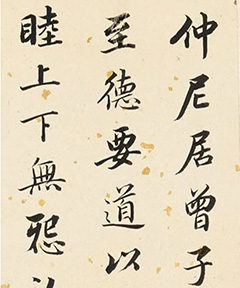 仲尼居曾子
至德要道以
睦上下無㤪